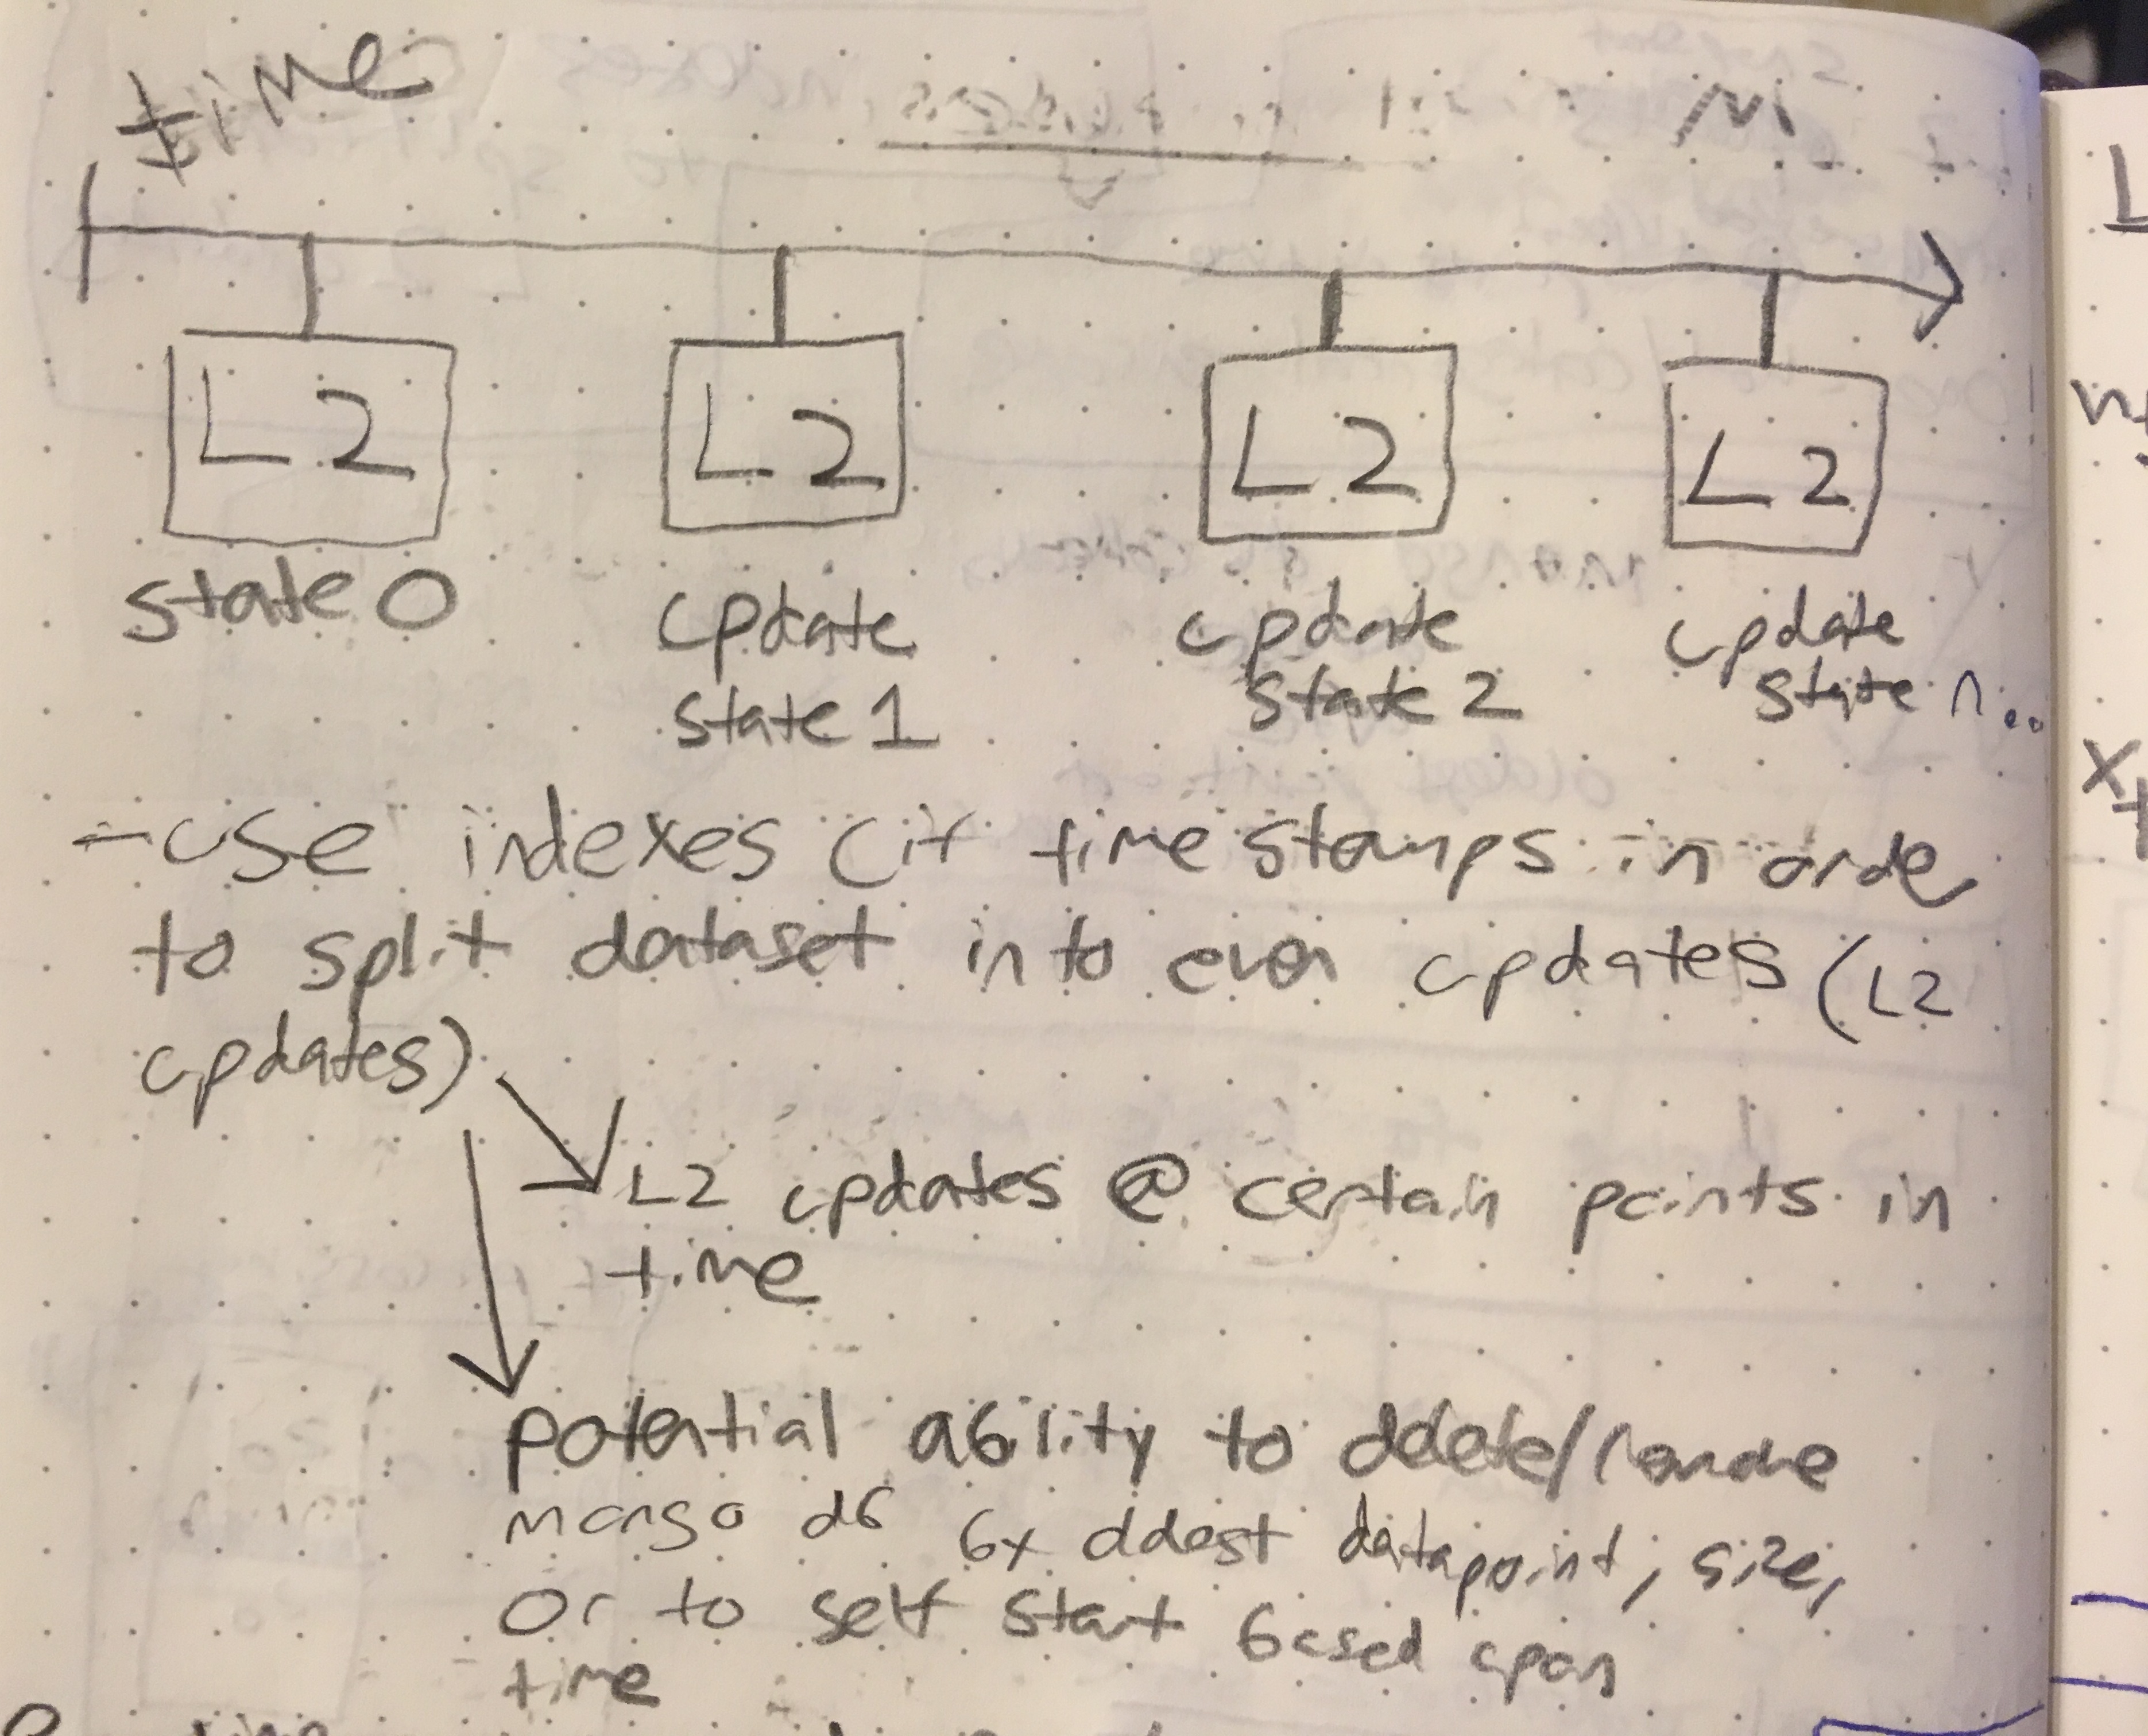 time
L2 L2 L2 L2
state 0 update update update
state 1 state 2 state n..
- use indexes (it time stamps in order
to split dataset into even updates (L2
updates)
L2 updates @ certain points in
time
potential ability to delete/remove
mongo db by oldest datapoint, size,
or to self start based upon
time